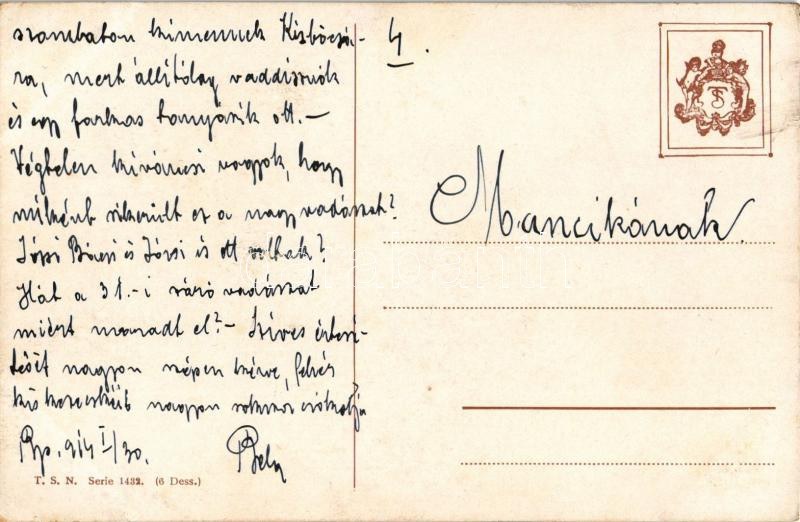 szombaton kimennek Kisbócsá-
ra, mert állítólag vaddisznók
és egy farkas tanyázik ott.—
Végtelen kiváncsi vagyok, hogy
miként sikerült ez a nagy vadászat?
Józsi Bácsi és Józsi is ott voltak?
Hát a 31.-i záró vadászat
miért maradt el?— Szíves értesi-
tését nagyon szépen kérve, fehér
kis kezecskéit nagyon sokszor csókolja
Bp. 914 I/30. Bely
T. S. N. Serie 1432. (6 Dess.)
4.
TS
Mancikának